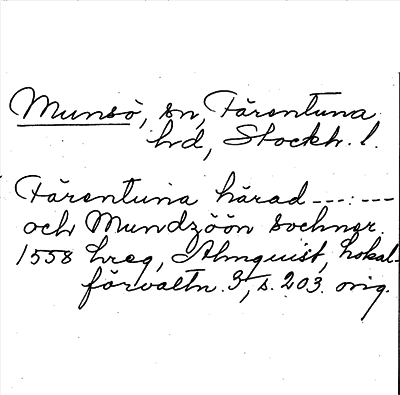 Munsö, sn, Färentuna
hd, Stockh. l.
Färentuna härad ---:---
och Mundzöön sochner
1558 hreg, Almquist, Lokal-
förvaltn. 3, s. 203. orig.